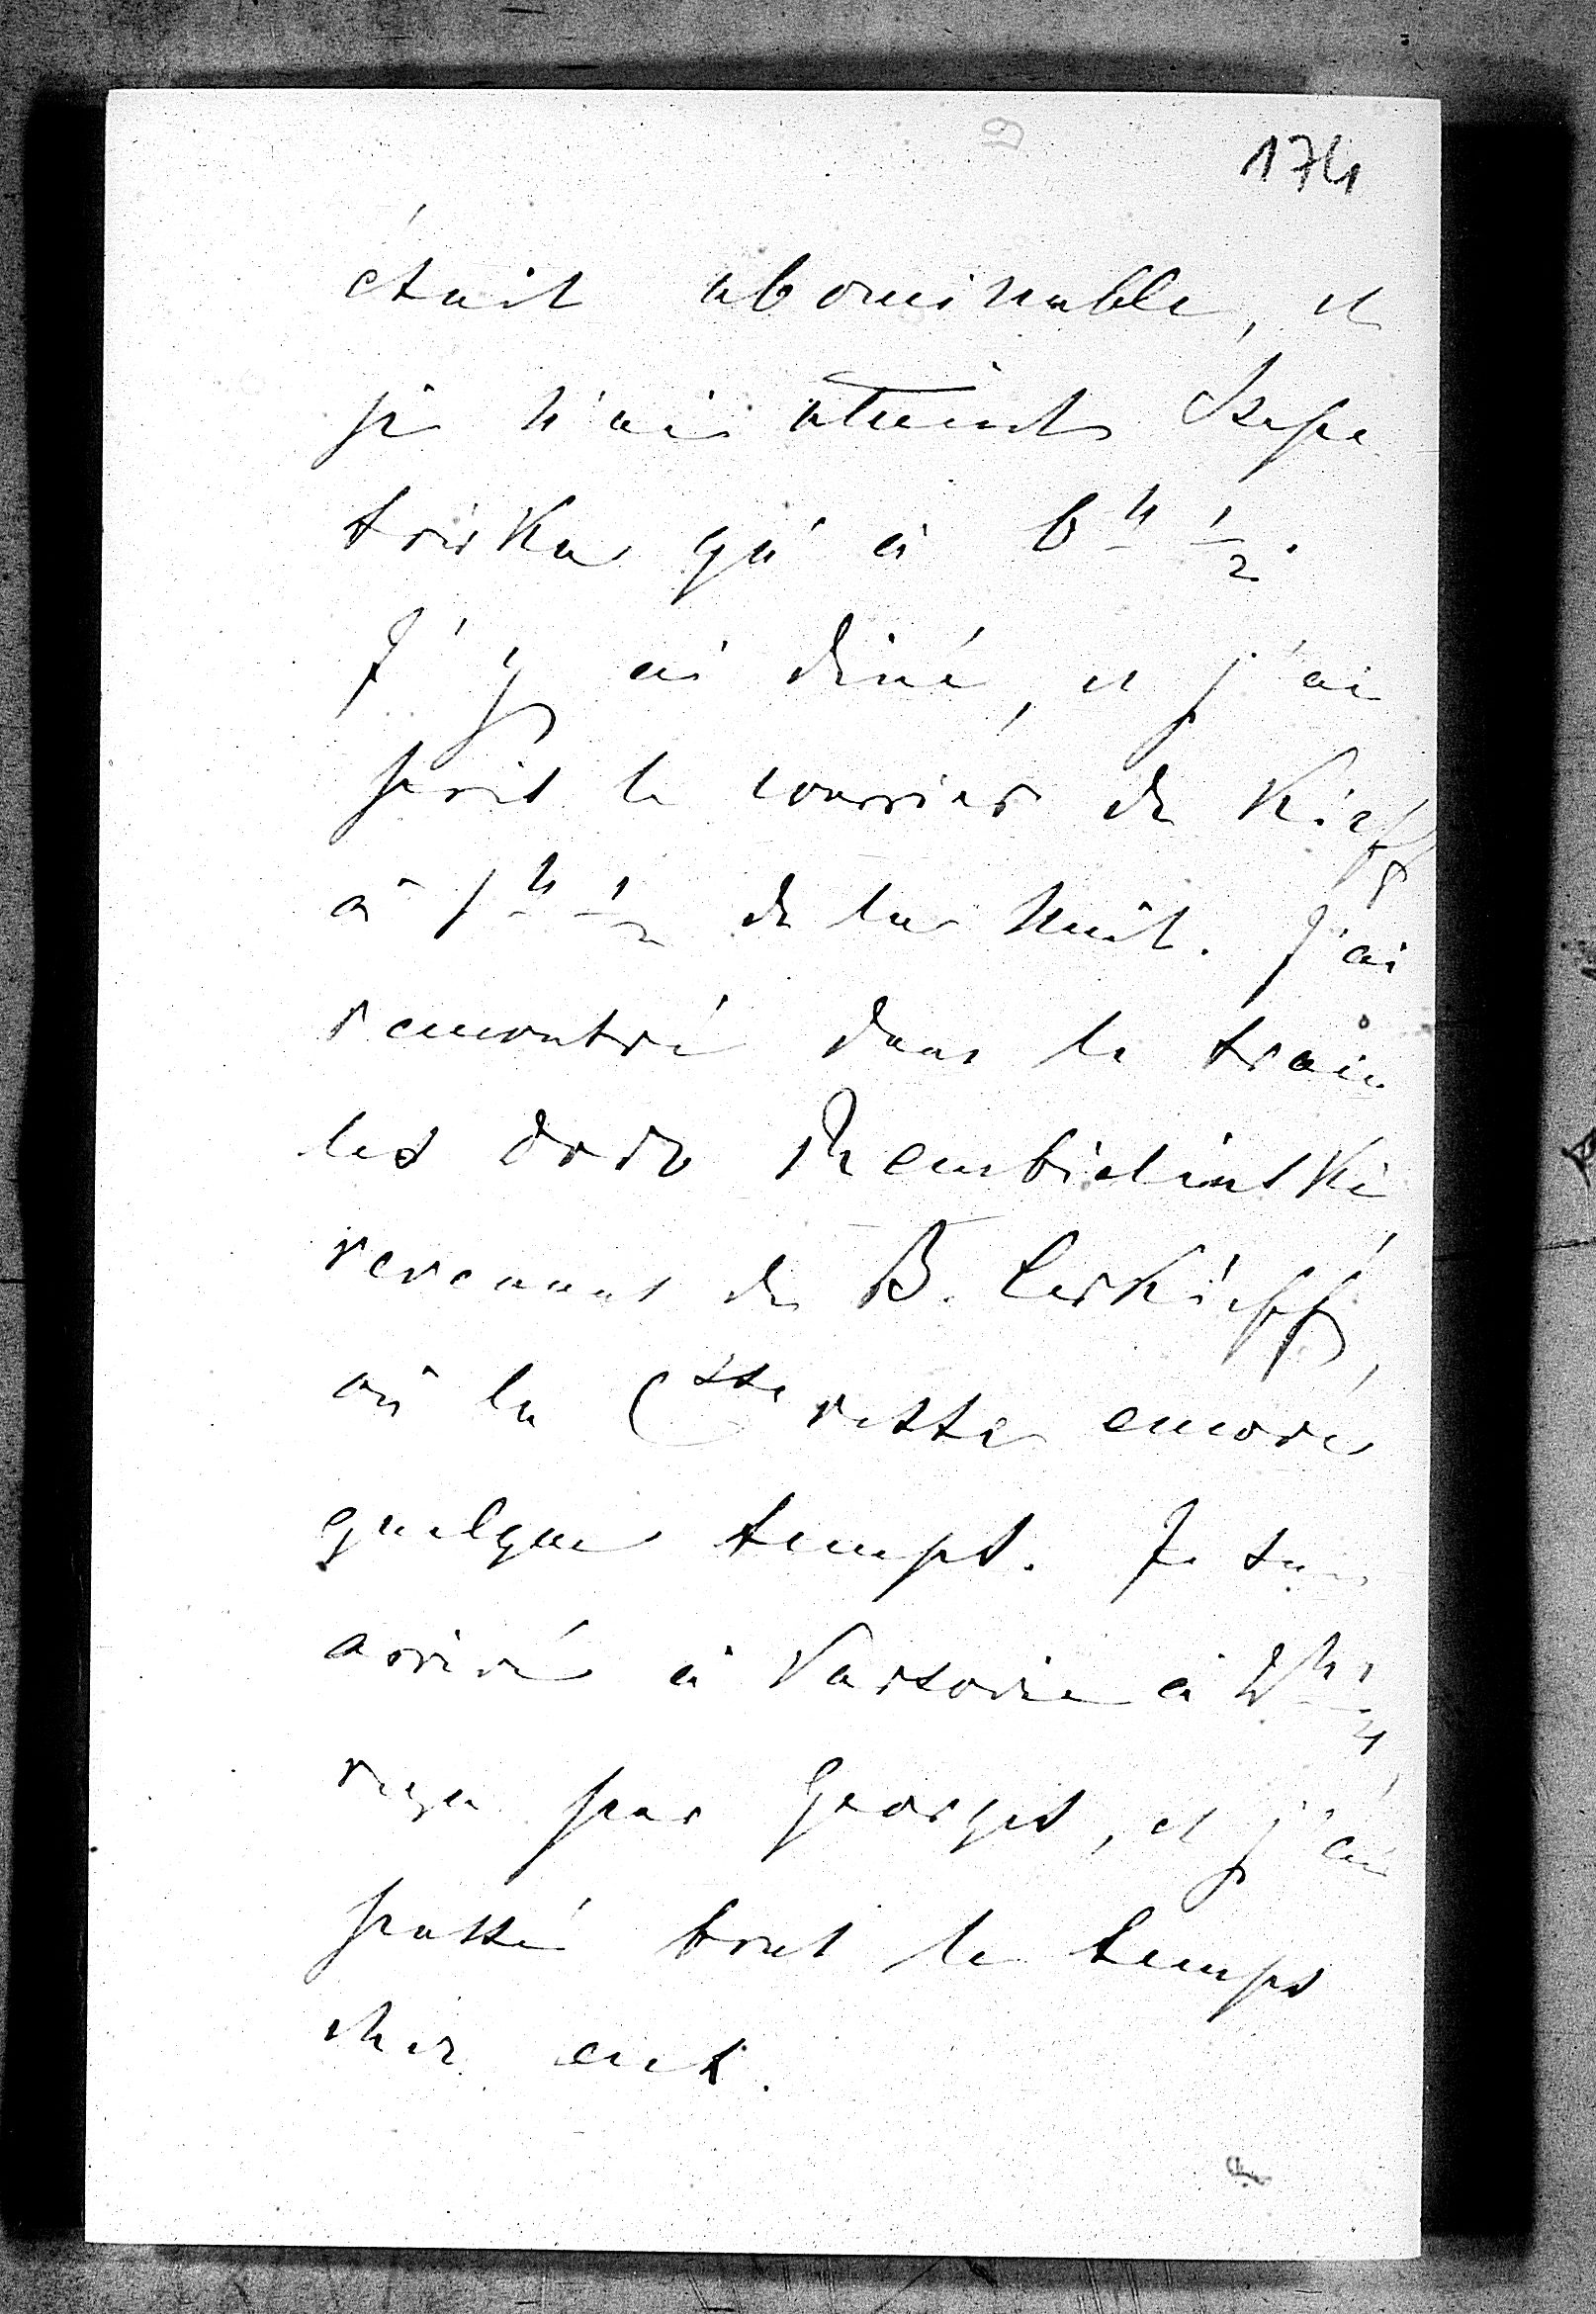 174
était abominable, et
je n'ai atteint Szepe
tówka qu'à 6 h 1/2.
J'y ai diné, et j'ai
pris le courrier de Kieff
à 1 h 1/2 de la nuit. J'ai
rencontré dans le train
les Dodo Rembielinski
revenant de B. Cerkieff,
où la Csse reste encore
quelque temps. Je suis
arrivé à Varsovie à 2 h 1/4,
reçu par Georges, et j'ai
passé tout le temps
chez eux.